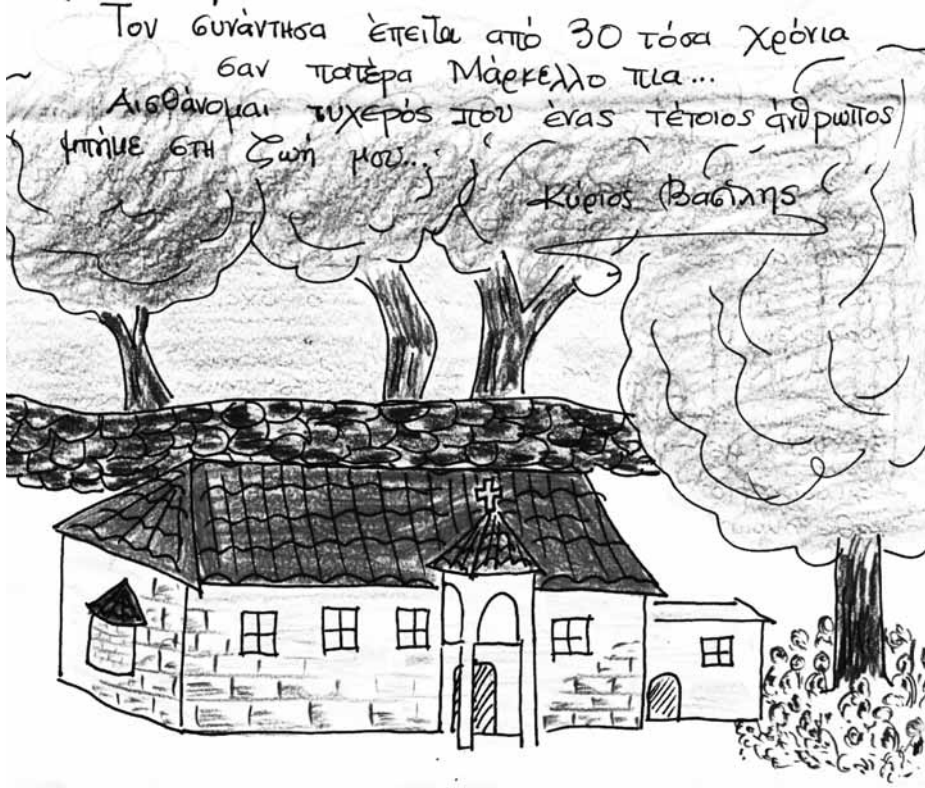 Τον συνάντησα έπειτα από 30 τόσα χρόνια
σαν πατέρα Μάρκελλο πια...
Αισθάνομαι τυχερός που ένας τέτοιος άνθρωπος
μπήκε στη ζωή μου...
Κύριος Βασίλης